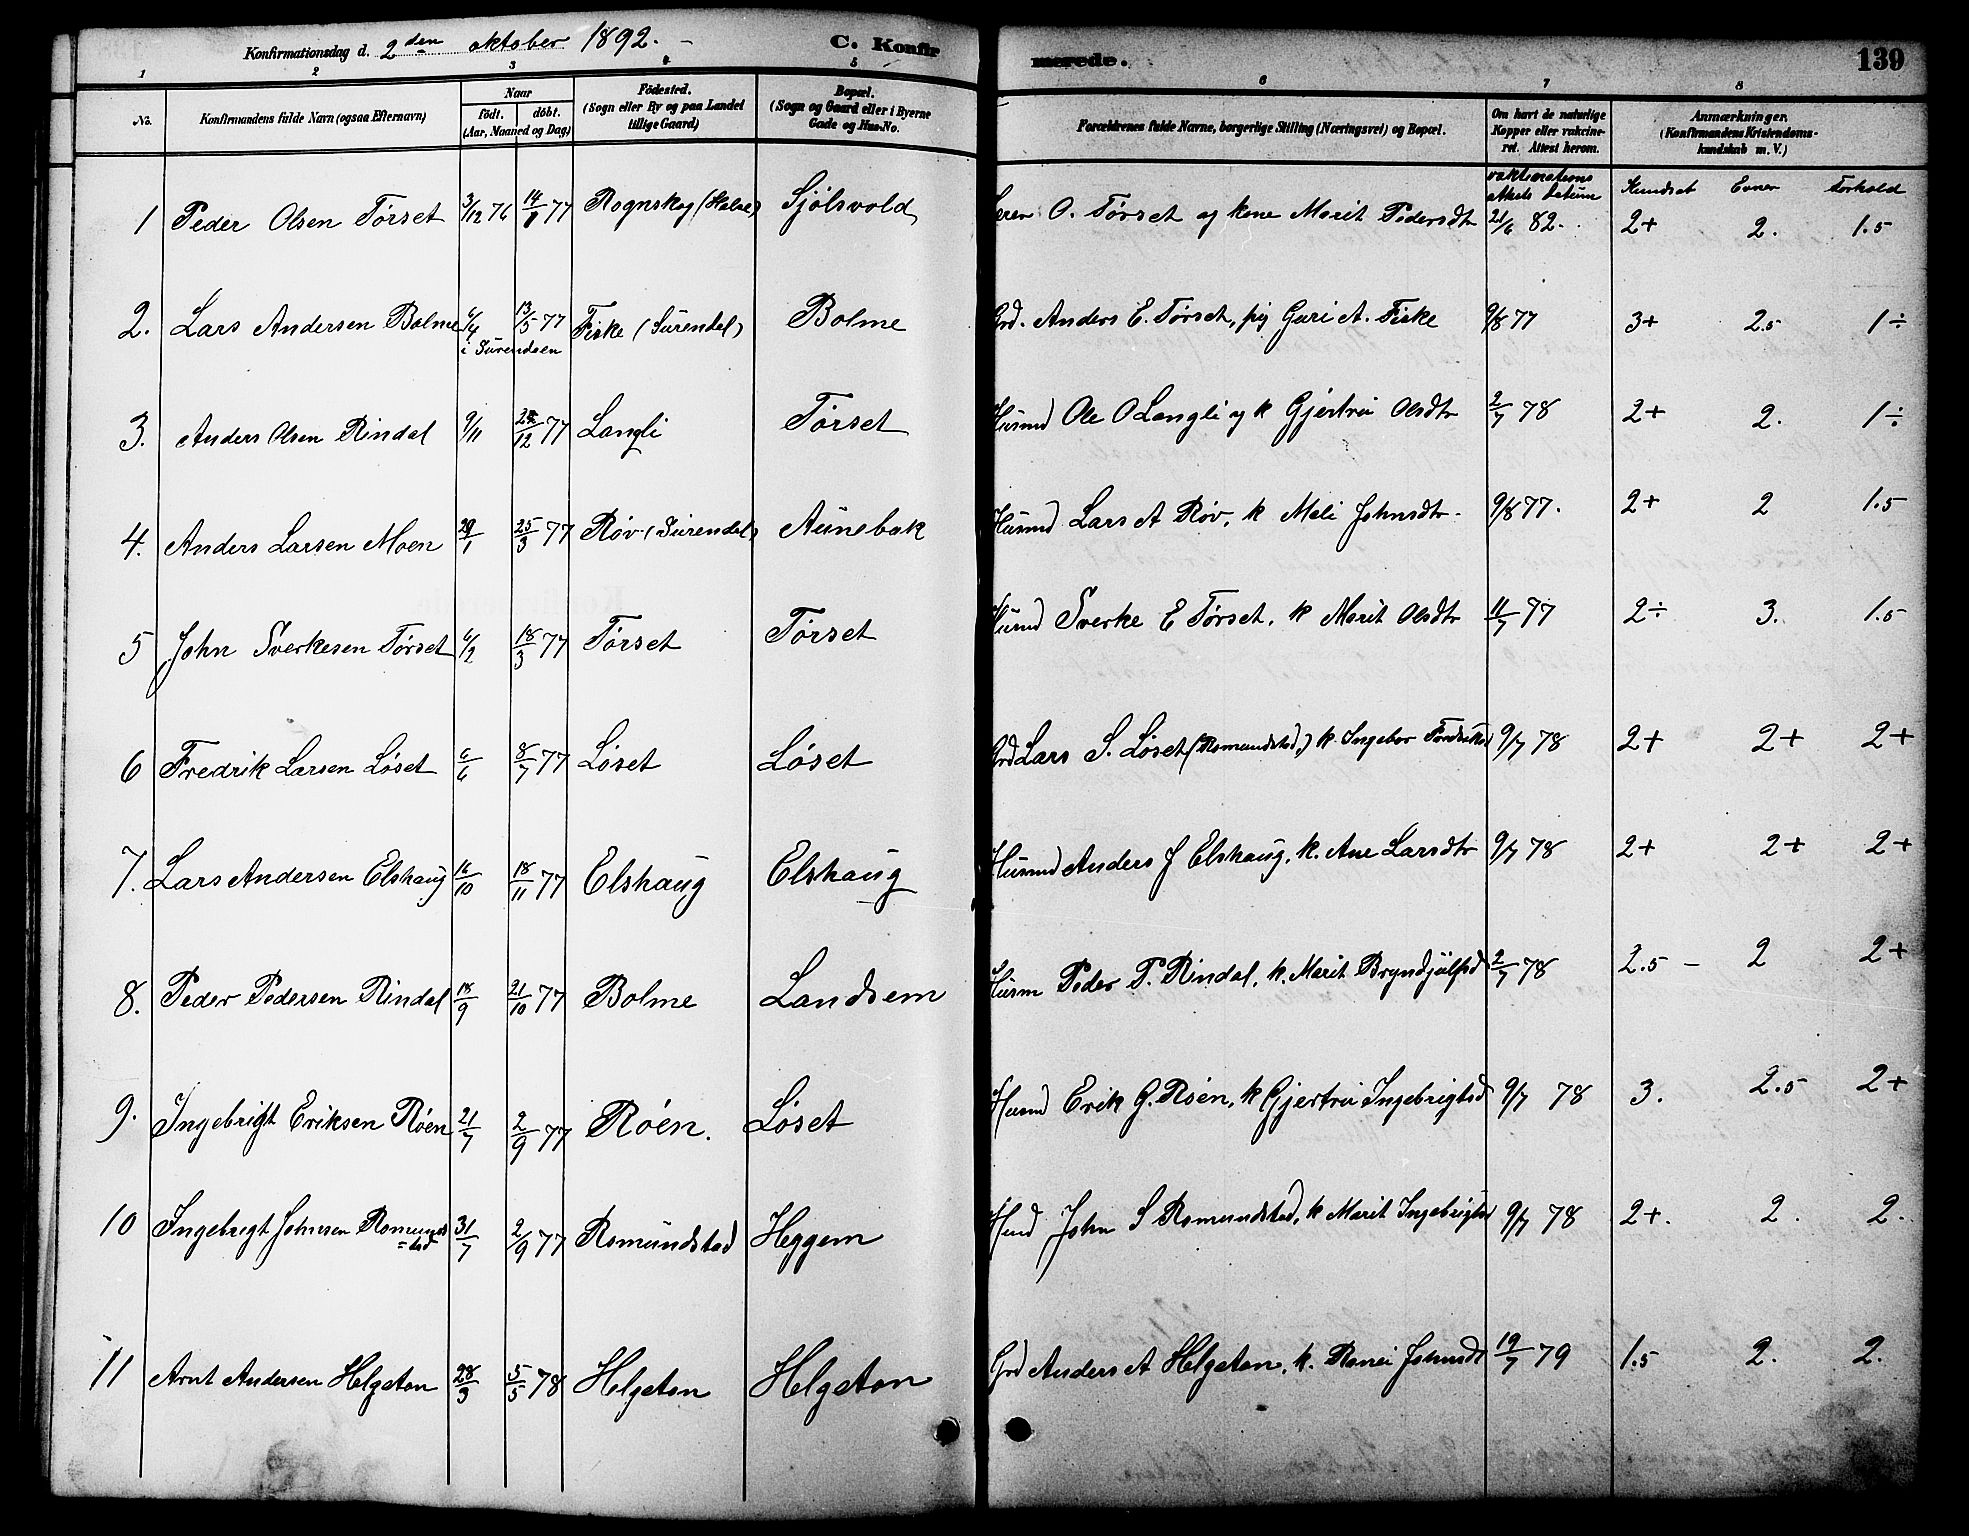 Konfirmationsdag d. 2den oktober 1892. C. Konfirmerede. 139
1 2 3 4 5 6 7 8
No. Konfirmandens fulde Navn (ogsaa Efternavn) Naar født. døbt. (Aar, Maaned og Dag) Fødested. (Sogn eller By og paa Landet tillige Gaard) Bopæl. (Sogn og Gaard eller i Byerne Gade og Hus-No. Forældrenes fulde Navne, borgerlige Stilling (Næringsvei) og Bopæl. Om havt de naturlige Kopper eller vakcineret. Attest herom. Anmærkninger. (Konfirmandens Kristendomskundskab m. V.)
vaktinations attests datum Kundsk Evner Forhold
1 Peder Olsen Tørset 3/12 76 14/1 77 Rognskog (Halse) Sjølsvold O. Tørset og kone Marit Pedersdt 21/6 82. 2+ 2. 1.5
2. Lars Andersen Bolme 6/4 13/5 77 Fiske (Surendal) Bolme Grd. Anders E. Tørset, pig Guri A. Fiske 9/8 77 3+ 2.5 1÷
i Surendsen
3. Anders Olsen Rindal 9/11 12 77 Langli Tørset Husmd Ole O Langli og k Gjertru Olsdtr 2/7 78 2+ 2. 1÷
4. Anders Larsen Moen 29/1 25/3 77 Røv (Surendal) Aunebak Husmd Lars A Røv, k Mali Johnsdtr. 9/8 77. 2+ 2 1.5
5 John Sverkesen Tørset 6/2 18/3 77 Tørset Tørset Husmd Sverke E Tørset, k Marit Olsdtr 11/7 77 2÷ 3. 1.5
6 Fredrik Larsen Løset 6/6 8/7 77 Løset Løset Grd Lars S. Løset (Romundstad,) k Ingebor Fredriksd 9/7 78 2+ 2+ 2+
7. Lars Andersen Elshaug 16/10 18/11 77 Elshaug Elshaug Husmd Anders J Elshaug, k. Ane Larsdtr 9/7 78 2+ 2+ 2+
8. Peder Pedersen Rindal 18/9 21/10 77 Bolme Landsem Husm Peder P. Rindal, k. Marit Bryndjulfsd 2/7 78 2.5 – 2 2+
9. Ingebrigt Eriksen Røen 21/7 2/9 77 Røen. Løset Husmd Erik G. Røen, k Gjertru Ingebrigtsd 9/7 78 3. 2.5 2+
10 Ingebrigt Johnsen Romunds 31/7 2/9 77 Romundstad Heggem John S Romundstad, k Marit Ingebrigtsd 9/7 78 2+. 2. 2.
=tad
11 Arnt Andersen Helgeton 28/3 5/5 78 Helgeton Helgeton Grd Anders A Helgeton, k. Ranei Johnsdt 19/7 79 1.5 2. 2.